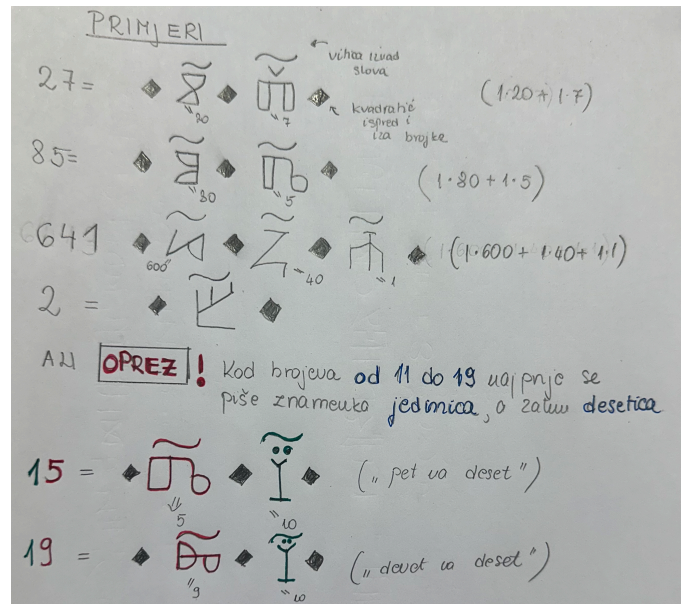 PRIMJERI
vitica iznad
slova
27=
(1·20+1·7)
"20
"7
kvadratić
ispred i
iza brojke
85=
"80
"5
(1·80+1·5)
641
600"
"40
"1
(1·600+1·40+1·1)
2 =
ALI OPREZ! Kod brojeva od 11 do 19 najprije se
piše znamenka jedinica, a zatim desetica
15 =
("pet na deset")
5
"10
19 =
("devet na deset")
"9
"10